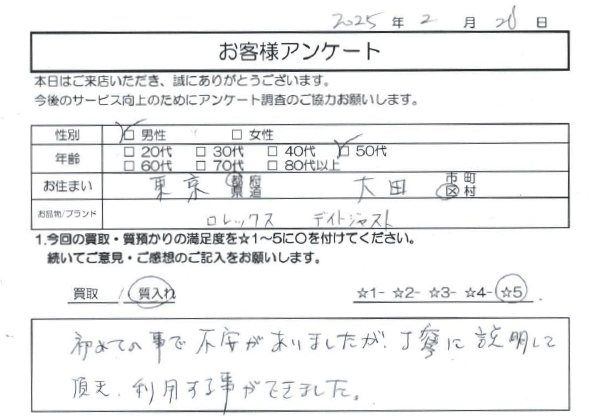 2025年2月28日
お客様アンケート
本日はご来店いただき、誠にありがとうございます。
今後のサービス向上のためにアンケート調査のご協力お願いします。
性別 ☑男性 □女性
年齢 □20代 □30代 □40代 ☑50代
□60代 □70代 □80代以上
お住まい 東京 都府県道 大田 市町区村
お品物/ブランド ロレックス デイトジャスト
1.今回の買取・質預かりの満足度を☆1～5に〇を付けてください。
続いてご意見・ご感想のご記入をお願いします。
買取 / 質入れ ☆1- ☆2- ☆3- ☆4- ☆5
初めての事で不安がありましたが、丁寧に説明して
頂き、利用する事ができました。